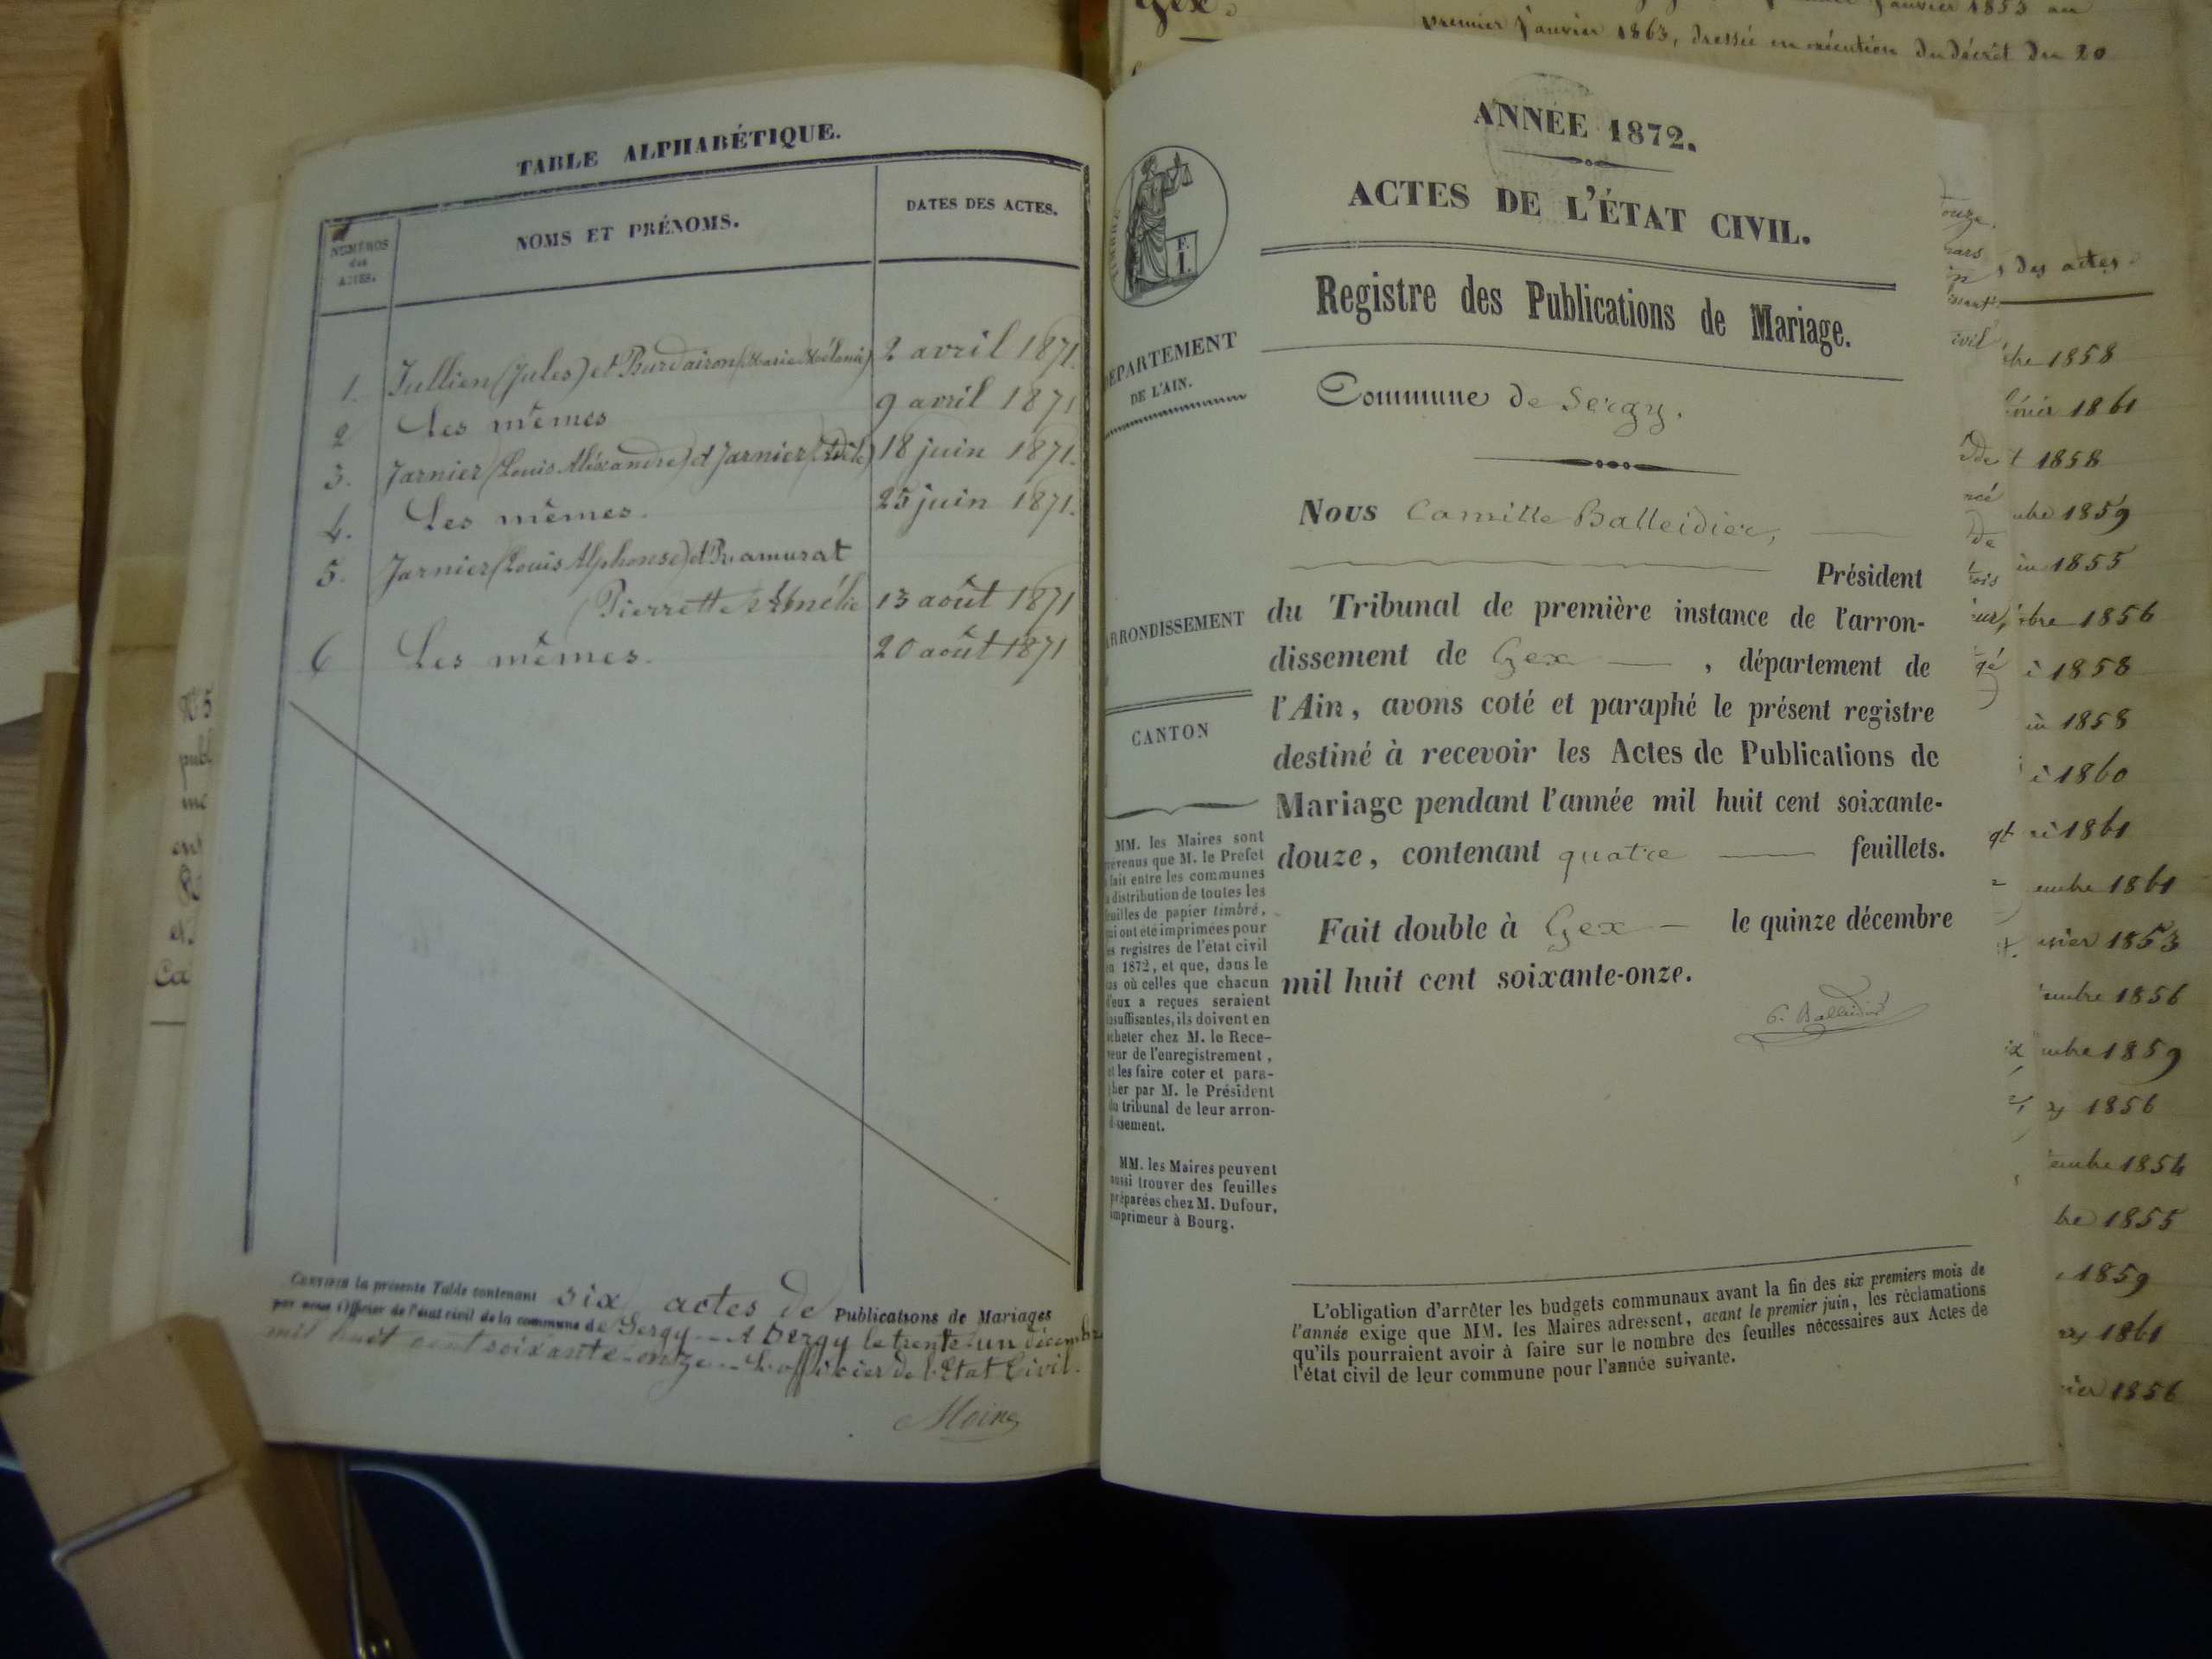 TABLE ALPHABÉTIQUE.
NUMÉROS
des
ACTES.
NOMS ET PRÉNOMS.
DATES DES ACTES.
1. Jullien (Jules) et Burdairon (Marie Mélanie) 2 avril 1871.
2 Les mêmes 9 avril 1871
3. Jarnier (Louis Aléxandre) et Jarnier 18 juin 1871.
4. Les mêmes. 25 juin 1871.
5. Jarnier (Louis Alphonse) et Pramurat
Pierrette 13 août 1871
6 Les mêmes. 20 août 1871
CERTIFIÉE la présente Table contenant six actes de Publications de Mariages
par nous Officier de l'état civil de la commune de Sergy -- A Sergy le trente-un décembre
mil huit cent soixante-onze -- L'officier de l'Etat Civil.
Moine
premier Janvier 1863, dressée en exécution du décrèt du 20
ANNÉE 1872.
ACTES DE L'ÉTAT CIVIL.
Registre des Publications de Mariage.
TIMBRE
F.
I.
DÉPARTEMENT
DE L'AIN.
Commune de Sergy.
Nous Camille Balleidier,
Président
du Tribunal de première instance de l'arron-
ARRONDISSEMENT
dissement de Gex , département de
l'Ain, avons coté et paraphé le présent registre
CANTON
destiné à recevoir les Actes de Publications de
Mariage pendant l'année mil huit cent soixante-
douze, contenant quatre feuillets.
Fait double à Gex le quinze décembre
mil huit cent soixante-onze.
C. Balleidier
MM. les Maires sont
prévenus que M. le Préfet
a fait entre les communes
la distribution de toutes les
feuilles de papier timbré,
qui ont été imprimées pour
les registres de l'état civil
en 1872, et que, dans le
cas où celles que chacun
d'eux a reçues seraient
insuffisantes, ils doivent en
acheter chez M. le Rece-
veur de l'enregistrement,
et les faire coter et para-
pher par M. le Président
du tribunal de leur arron-
dissement.
MM. les Maires peuvent
aussi trouver des feuilles
préparées chez M. Dufour,
imprimeur à Bourg.
L'obligation d'arrêter les budgets communaux avant la fin des six premiers mois de
l'année exige que MM. les Maires adressent, avant le premier juin, les réclamations
qu'ils pourraient avoir à faire sur le nombre des feuilles nécessaires aux Actes de
l'état civil de leur commune pour l'année suivante.
des actes
1858
1861
1858
1859
1855
1856
1858
1858
1860
1861
1861
1853
1856
1859
1856
1854
1855
1859
1861
1856